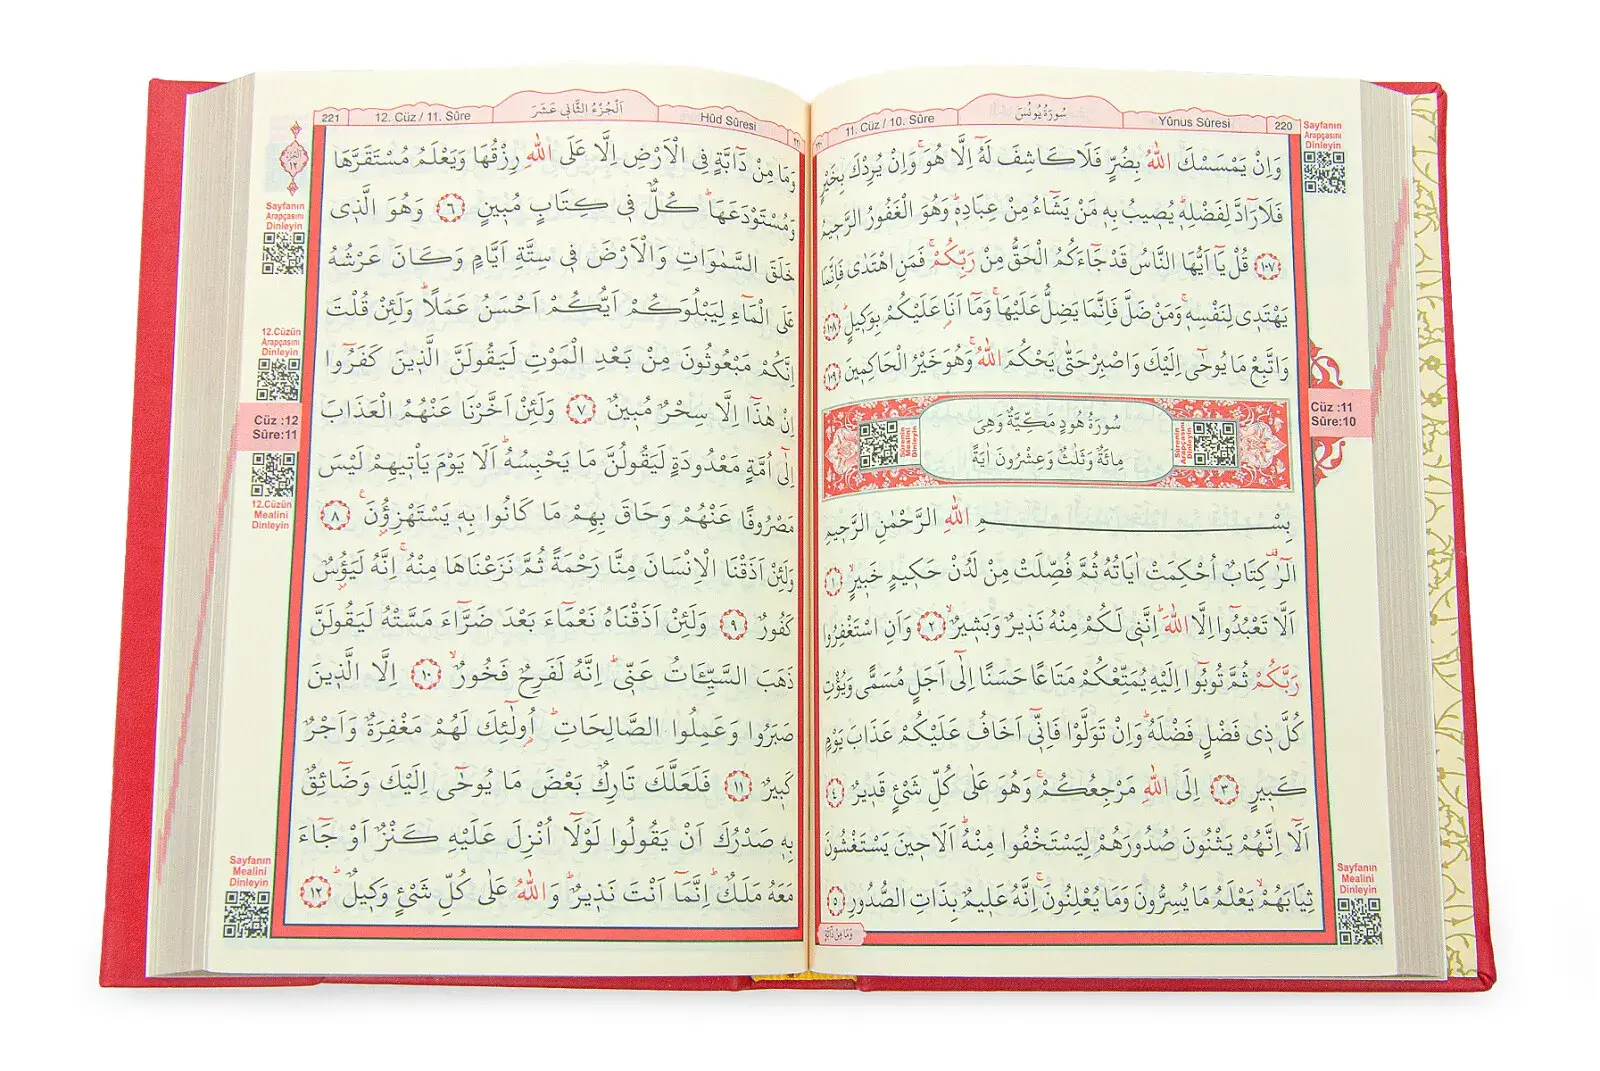 220
Yûnus Sûresi
سُورَةُ يُونُسَ
11. Cüz / 10. Sûre
وَاِنْ يَمْسَسْكَ اللّٰهُ بِضُرٍّ فَلَا كَاشِفَ لَهُٓ اِلَّا هُوَۚ وَاِنْ يُرِدْكَ بِخَيْرٍ
فَلَا رَٓادَّ لِفَضْلِه۪ۜ يُص۪يبُ بِه۪ مَنْ يَشَٓاءُ مِنْ عِبَادِه۪ۜ وَهُوَ الْغَفُورُ الرَّح۪يمُ
﴿١٠٧﴾ قُلْ يَٓا اَيُّهَا النَّاسُ قَدْ جَٓاءَكُمُ الْحَقُّ مِنْ رَبِّكُمْۚ فَمَنِ اهْتَدٰى فَاِنَّمَا
يَهْتَد۪ي لِنَفْسِه۪ۚ وَمَنْ ضَلَّ فَاِنَّمَا يَضِلُّ عَلَيْهَاۚ وَمَٓا اَنَا۬ عَلَيْكُمْ بِوَك۪يلٍۜ ﴿١٠٨﴾
وَاتَّبِعْ مَا يُوحٰٓى اِلَيْكَ وَاصْبِرْ حَتّٰى يَحْكُمَ اللّٰهُۚ وَهُوَ خَيْرُ الْحَاكِم۪ينَ ﴿١٠٩﴾
سُورَةُ هُودٍ مَكِّيَّةٌ وَهِيَ
مِائَةٌ وَثَلٰثٌ وَعِشْرُونَ اٰيَةً
Sûrenin Arapçasını Dinleyin
Sûrenin Mealini Dinleyin
بِسْمِ اللّٰهِ الرَّحْمٰنِ الرَّح۪يمِ
الٓرٰ۠ كِتَابٌ اُحْكِمَتْ اٰيَاتُهُ ثُمَّ فُصِّلَتْ مِنْ لَدُنْ حَك۪يمٍ خَب۪يرٍۙ ﴿١﴾
اَلَّا تَعْبُدُٓوا اِلَّا اللّٰهَۜ اِنَّن۪ي لَكُمْ مِنْهُ نَذ۪يرٌ وَبَش۪يرٌۙ ﴿٢﴾ وَاَنِ اسْتَغْفِرُوا
رَبَّكُمْ ثُمَّ تُوبُٓوا اِلَيْهِ يُمَتِّعْكُمْ مَتَاعًا حَسَنًا اِلٰٓى اَجَلٍ مُسَمًّى وَيُؤْتِ
كُلَّ ذ۪ي فَضْلٍ فَضْلَهُۜ وَاِنْ تَوَلَّوْا فَاِنّ۪ٓي اَخَافُ عَلَيْكُمْ عَذَابَ يَوْمٍ
كَب۪يرٍ ﴿٣﴾ اِلَى اللّٰهِ مَرْجِعُكُمْۚ وَهُوَ عَلٰى كُلِّ شَيْءٍ قَد۪يرٌ ﴿٤﴾
اَلَٓا اِنَّهُمْ يَثْنُونَ صُدُورَهُمْ لِيَسْتَخْفُوا مِنْهُۜ اَلَا ح۪ينَ يَسْتَغْشُونَ
ثِيَابَهُمْۙ يَعْلَمُ مَا يُسِرُّونَ وَمَا يُعْلِنُونَۚ اِنَّهُ عَل۪يمٌ بِذَاتِ الصُّدُورِ ﴿٥﴾
وَمَا مِنْ دَٓابَّةٍ
Sayfanın
Arapçasını
Dinleyin
Cüz :11
Sûre:10
Sayfanın
Mealini
Dinleyin
Hûd Sûresi
اَلْجُزْءُ الثَّانِي عَشَرَ
12. Cüz / 11. Sûre
221
وَمَا مِنْ دَٓابَّةٍ فِي الْاَرْضِ اِلَّا عَلَى اللّٰهِ رِزْقُهَا وَيَعْلَمُ مُسْتَقَرَّهَا
وَمُسْتَوْدَعَهَاۜ كُلٌّ ف۪ي كِتَابٍ مُب۪ينٍ ﴿٦﴾ وَهُوَ الَّذ۪ي
خَلَقَ السَّمٰوَاتِ وَالْاَرْضَ ف۪ي سِتَّةِ اَيَّامٍ وَكَانَ عَرْشُهُ
عَلَى الْمَٓاءِ لِيَبْلُوَكُمْ اَيُّكُمْ اَحْسَنُ عَمَلًاۜ وَلَئِنْ قُلْتَ
اِنَّكُمْ مَبْعُوثُونَ مِنْ بَعْدِ الْمَوْتِ لَيَقُولَنَّ الَّذ۪ينَ كَفَرُٓوا
اِنْ هٰذَٓا اِلَّا سِحْرٌ مُب۪ينٌ ﴿٧﴾ وَلَئِنْ اَخَّرْنَا عَنْهُمُ الْعَذَابَ
اِلٰٓى اُمَّةٍ مَعْدُودَةٍ لَيَقُولُنَّ مَا يَحْبِسُهُۜ اَلَا يَوْمَ يَأْت۪يهِمْ لَيْسَ
مَصْرُوفًا عَنْهُمْ وَحَاقَ بِهِمْ مَا كَانُوا بِه۪ يَسْتَهْزِؤُ۫نَ۟ ﴿٨﴾
وَلَئِنْ اَذَقْنَا الْاِنْسَانَ مِنَّا رَحْمَةً ثُمَّ نَزَعْنَاهَا مِنْهُۚ اِنَّهُ لَيَؤُ۫سٌ
كَفُورٌ ﴿٩﴾ وَلَئِنْ اَذَقْنَاهُ نَعْمَٓاءَ بَعْدَ ضَرَّٓاءَ مَسَّتْهُ لَيَقُولَنَّ
ذَهَبَ السَّيِّـَٔاتُ عَنّ۪يۜ اِنَّهُ لَفَرِحٌ فَخُورٌۙ ﴿١٠﴾ اِلَّا الَّذ۪ينَ
صَبَرُوا وَعَمِلُوا الصَّالِحَاتِۜ اُو۬لٰٓئِكَ لَهُمْ مَغْفِرَةٌ وَاَجْرٌ
كَب۪يرٌ ﴿١١﴾ فَلَعَلَّكَ تَارِكٌ بَعْضَ مَا يُوحٰٓى اِلَيْكَ وَضَٓائِقٌ
بِه۪ صَدْرُكَ اَنْ يَقُولُوا لَوْلَٓا اُنْزِلَ عَلَيْهِ كَنْزٌ اَوْ جَٓاءَ
مَعَهُ مَلَكٌۜ اِنَّمَٓا اَنْتَ نَذ۪يرٌۜ وَاللّٰهُ عَلٰى كُلِّ شَيْءٍ وَك۪يلٌۜ ﴿١٢﴾
الجزء
١٢
Sayfanın
Arapçasını
Dinleyin
12.Cüzün
Arapçasını
Dinleyin
Cüz :12
Sûre:11
12.Cüzün
Mealini
Dinleyin
Sayfanın
Mealini
Dinleyin